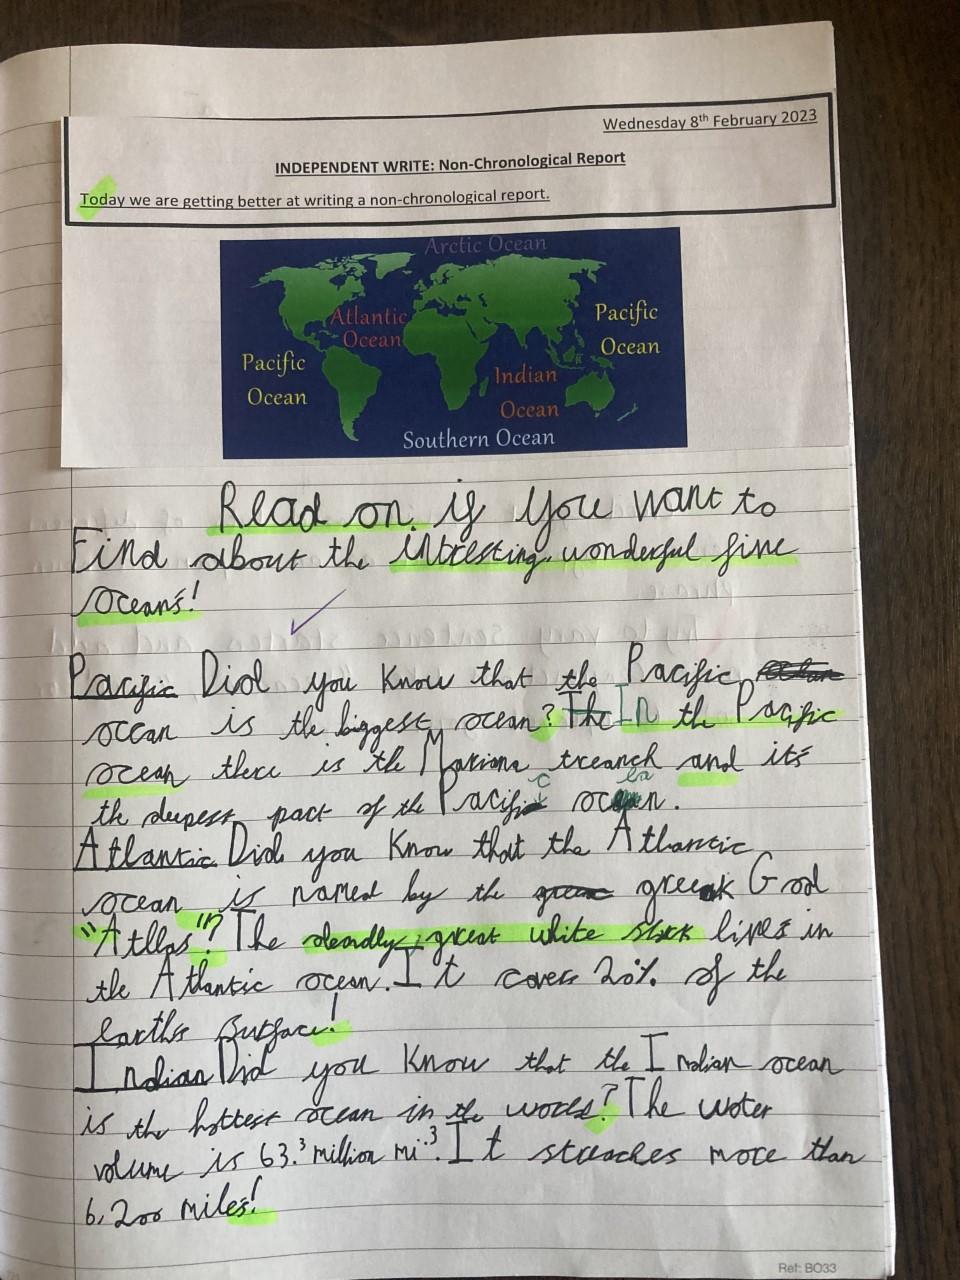 Wednesday 8th February 2023
INDEPENDENT WRITE: Non-Chronological Report
Today we are getting better at writing a non-chronological report.
Arctic Ocean
Atlantic Ocean
Pacific Ocean
Pacific Ocean
Indian Ocean
Southern Ocean
Read on if you want to
Find about the intresting, wonderful five
oceans!
Pacific Did you know that the Pacific
ocean is the biggest ocean? In the Pacific
ocean there is the Mariana treanch and its
the deepest part of the Pacific ocean.
Atlantic Did you know that the Atlantic
ocean is named by the greek God
"Atllas"? The deadly, great white shark lives in
the Atlantic ocean. It covers 20% of the
earths surface!
Indian Did you know that the Indian ocean
is the hottest ocean in the world? The water
volume is 63.³ million mi.³ It streaches more than
6,200 miles!
Ref: BO33